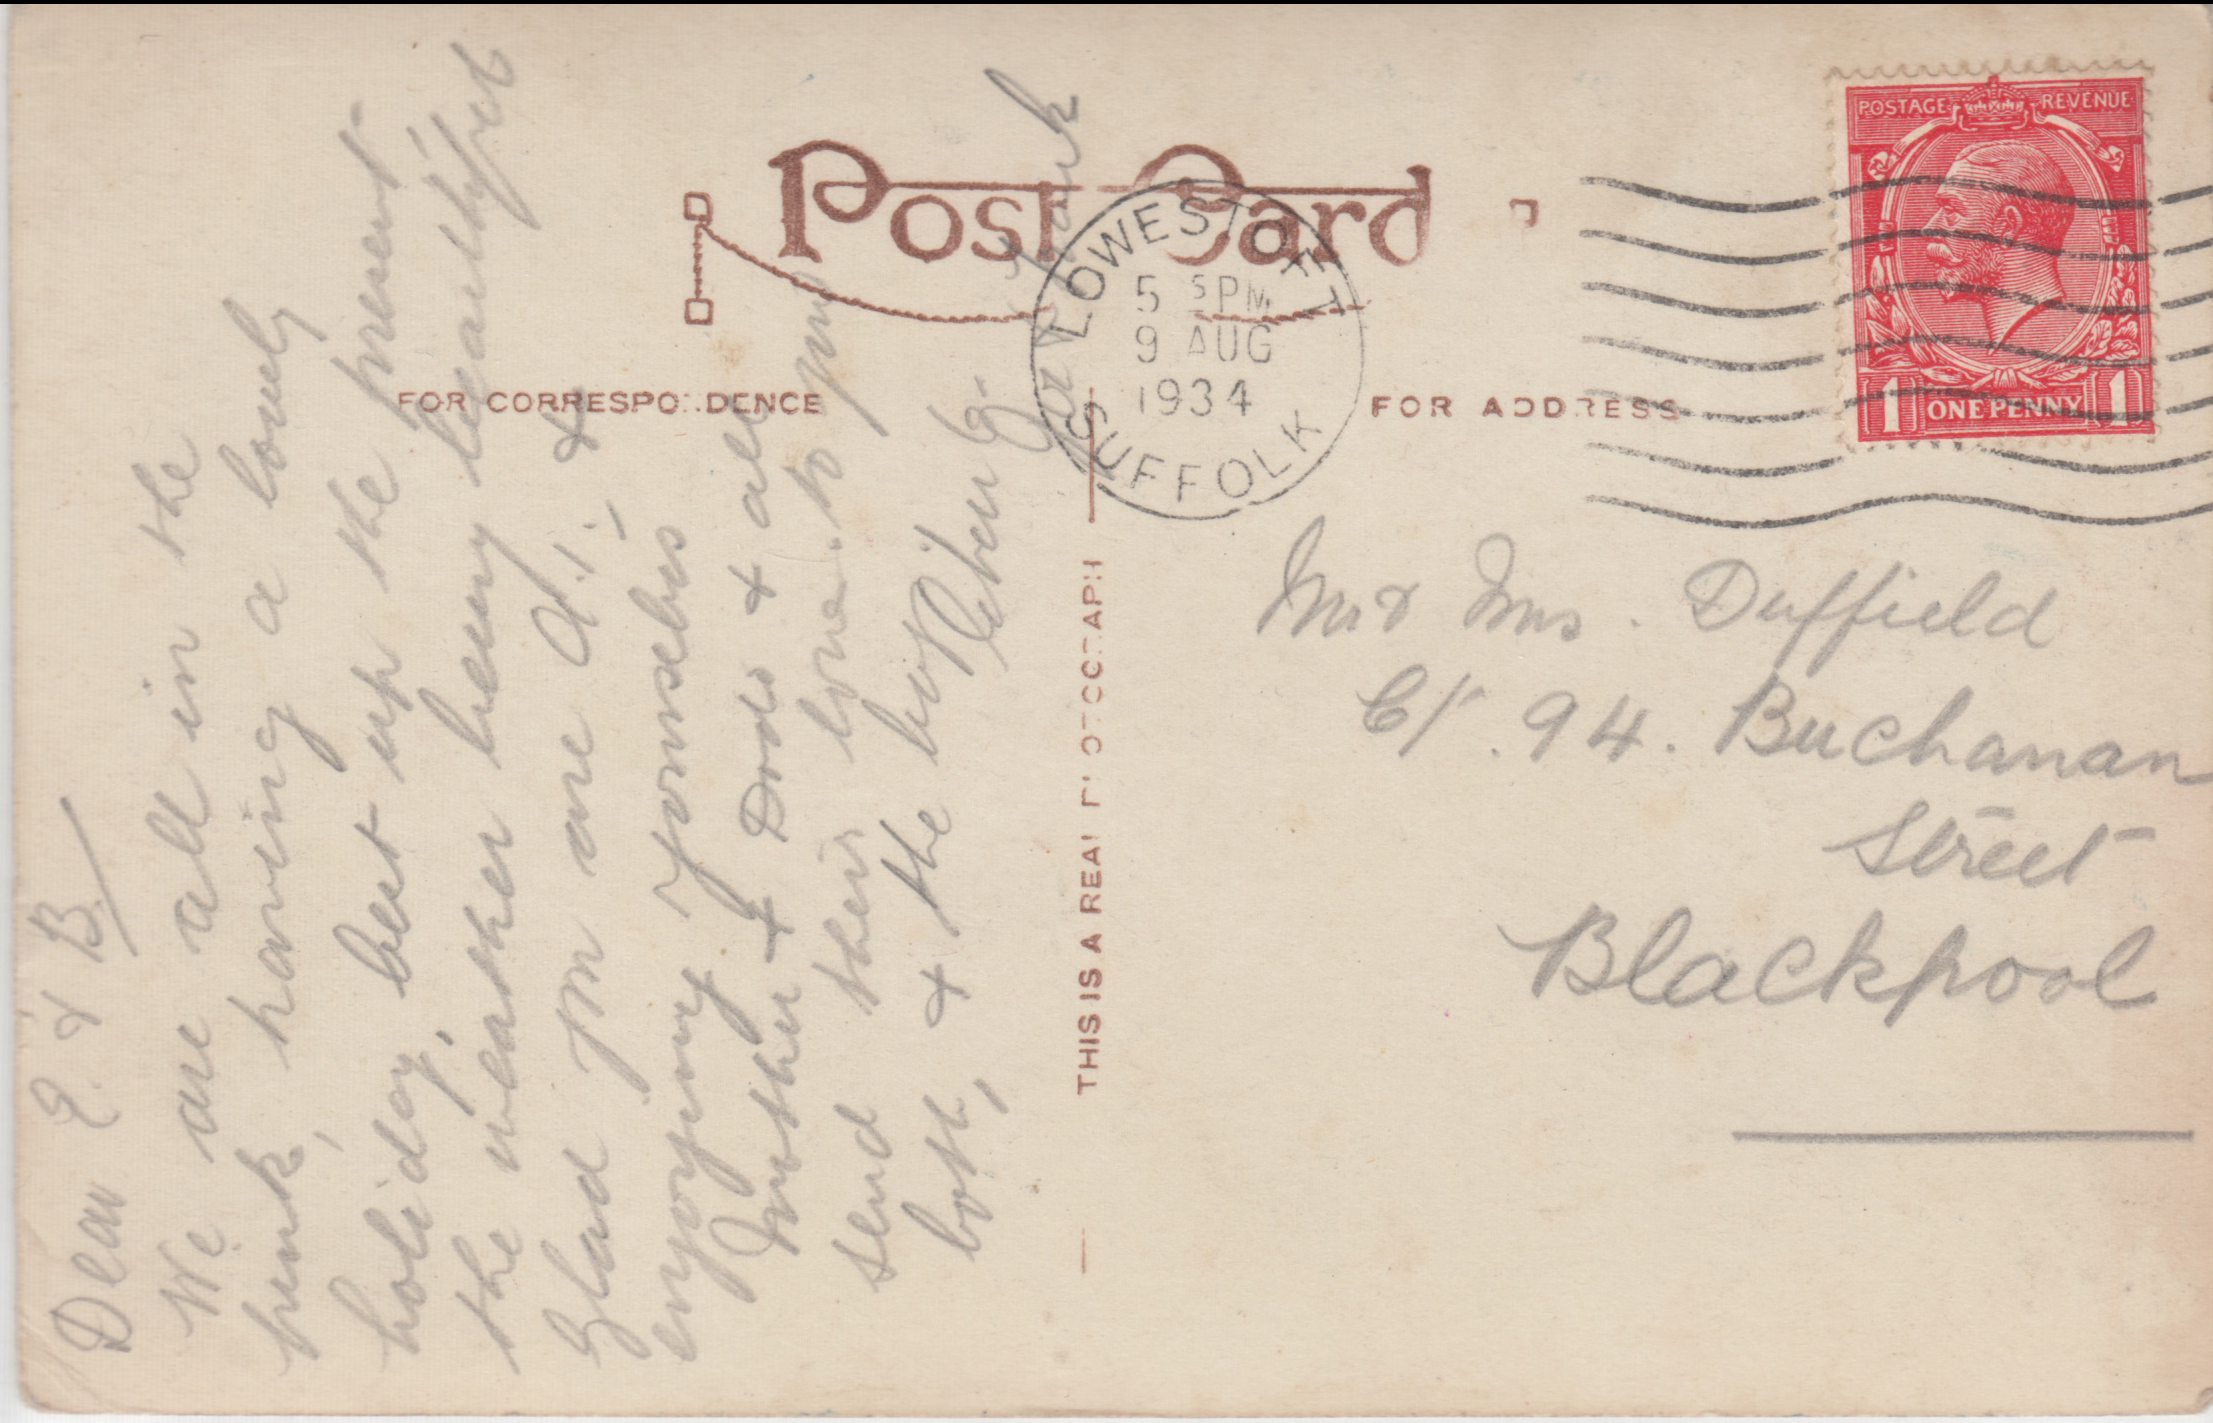 POST CARD
FOR CORRESPONDENCE
FOR ADDRESS
THIS IS A REAL PHOTOGRAPH
POSTAGE REVENUE
1 ONE PENNY 1
LOWESTOFT
5 PM
9 AUG
1934
SUFFOLK
Dear E. & B.
We are all in the
pink, having a lovely
holiday, but up the present
the weather being beautiful
Glad you are A.1. &
enjoying yourselves
Mother & Dad & all
send their love to you
both, & the
Mr & Mrs. Duffield
C/. 94. Buchanan
Street
Blackpool